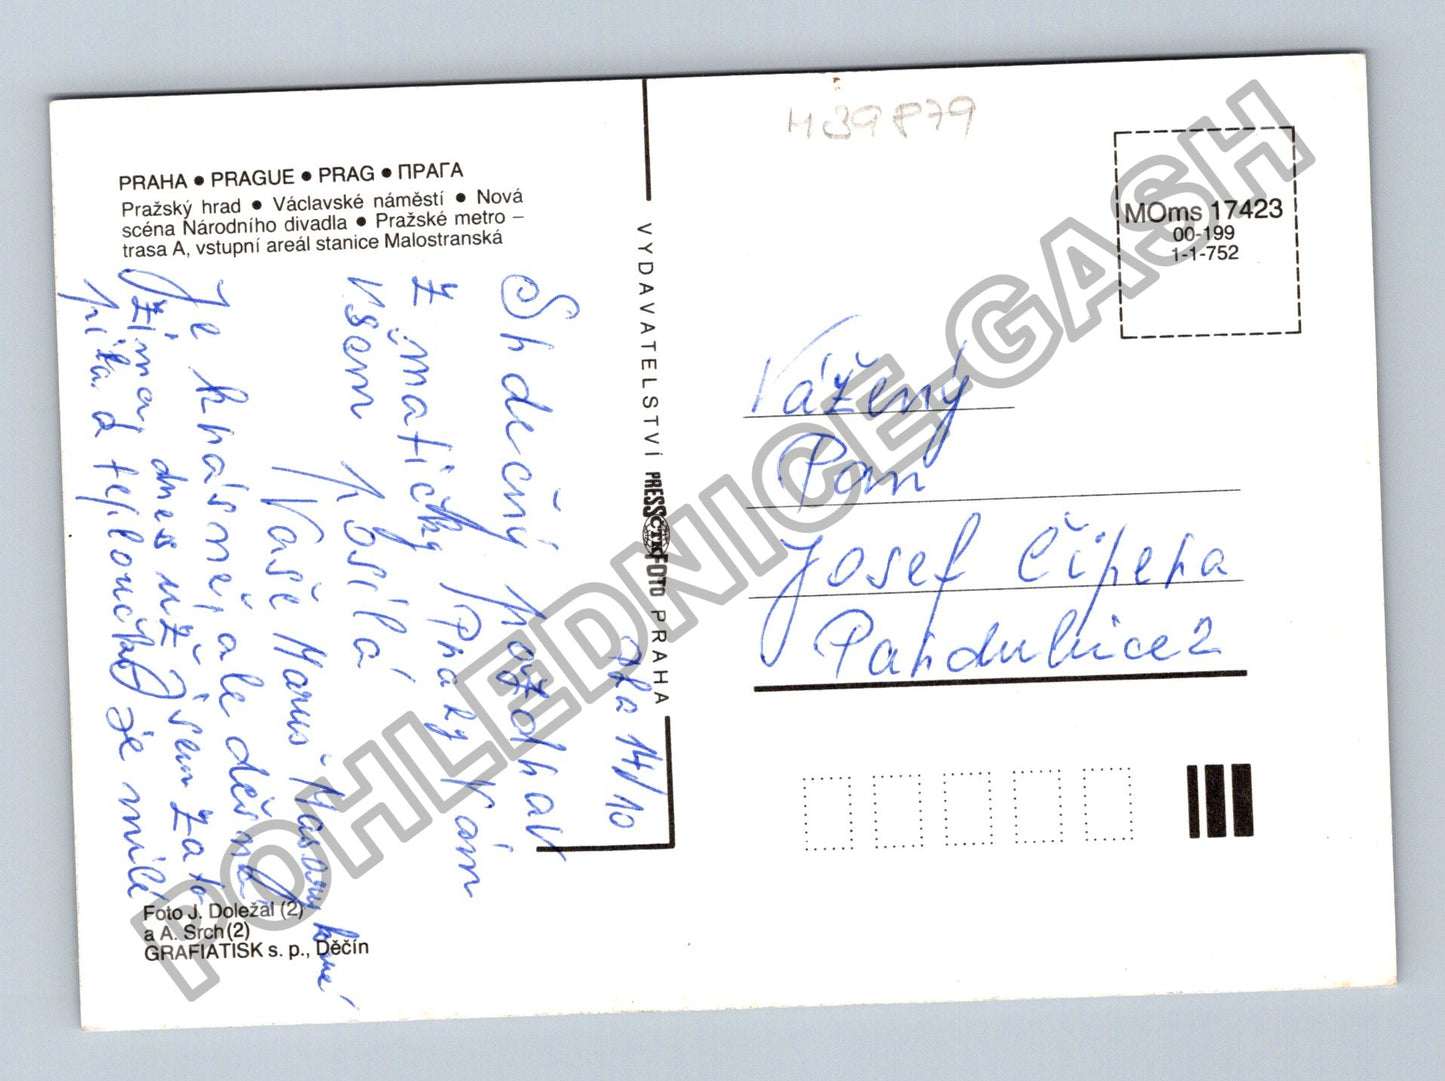 PRAHA ● PRAGUE ● PRAG ● ПРАГА
Pražský hrad ● Václavské náměstí ● Nová
scéna Národního divadla ● Pražské metro –
trasa A, vstupní areál stanice Malostranská
Srdečný pozdrav
z matičky Prahy Vám
všem posílá
Vaše
Je krásně, ale děsná
zima, dnes už jsem zato
pila 2 teploučký je milé
Pha 14/10
Foto J. Doležal (2)
a A. Srch (2)
GRAFIATISK s. p., Děčín
VYDAVATELSTVÍ PRESSFOTO PRAHA
ČTK
439879
MOms 17423
00-199
1-1-752
Vážený
Pan
Josef Čipera
Pardubice 2
POHLEDNICE-GASH